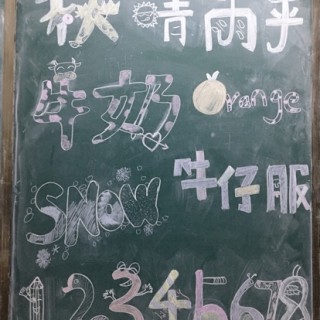 秋 晴雨乎
牛奶 Orange
SNOW 牛仔服
12345678